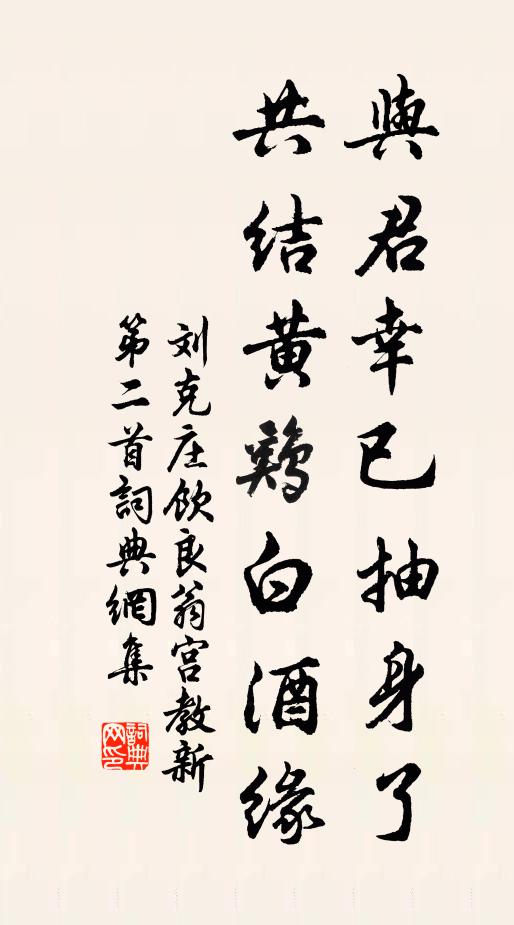 與君幸已抽身了
共結黃鷄白酒緣
刘克庄飲良翁宫教新
第二首詞典網集
詞典网印